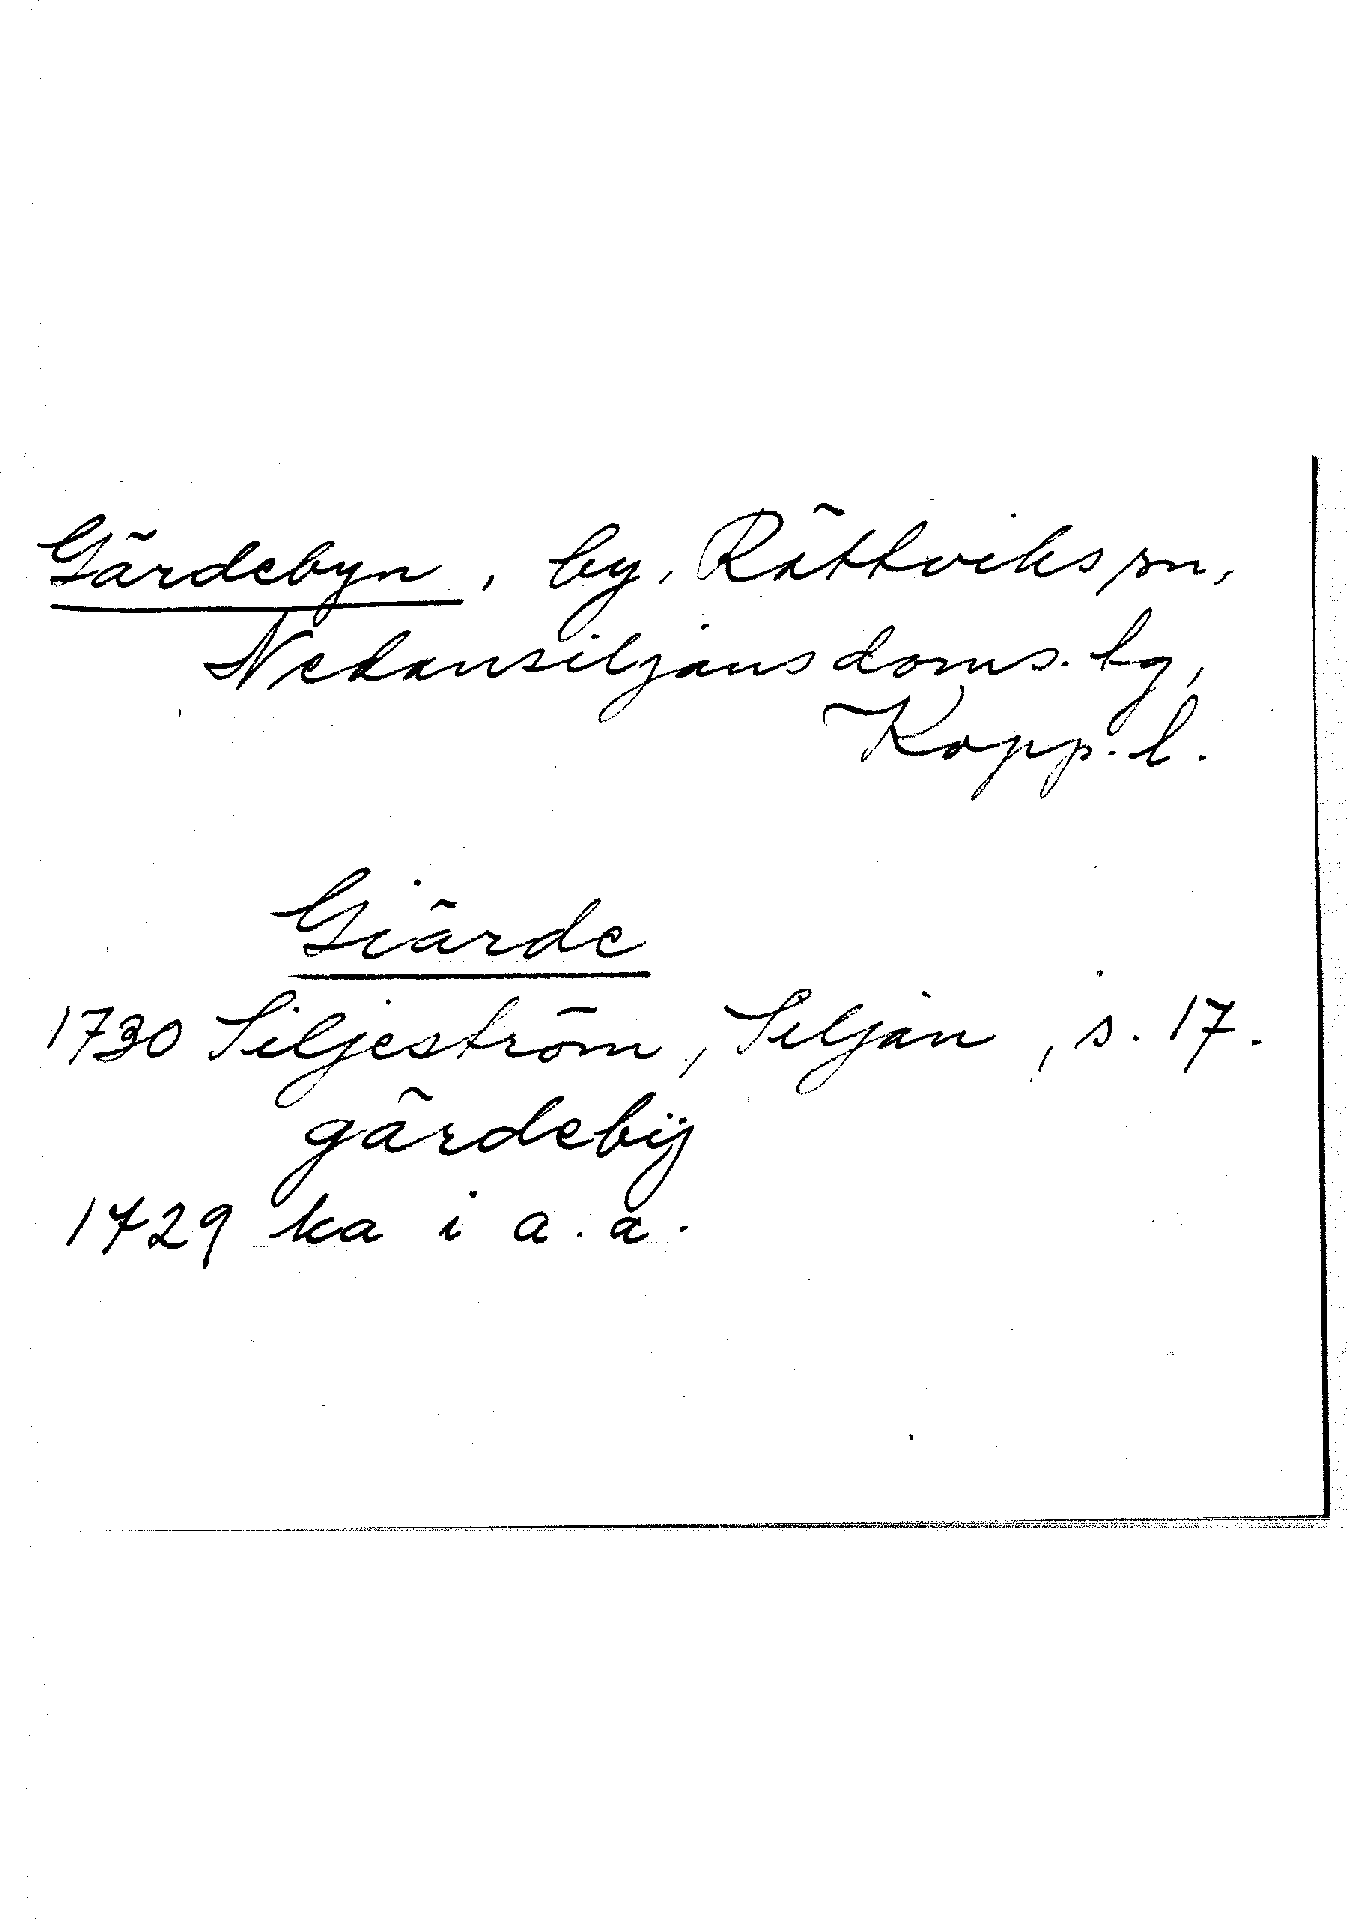 Gärdebyn, by, Rättviks sn,
Nedansiljans doms. lg,
Kopp. l.
Giärde
1730 Siljeström, Siljan, s. 17.
gärdebÿ
1729 ka i a.a.